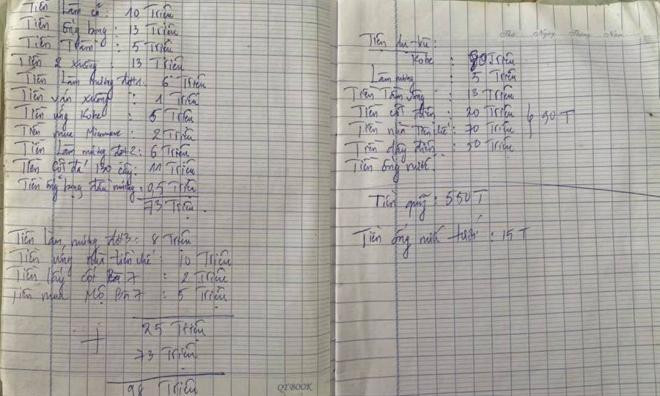 Tiền làm cỏ : 10 Triệu
Tiền ống bông : 13 Triệu
Tiền : 5 Triệu
Tiền 2 xuồng : 13 Triệu
Tiền làm mương đợt1 : 6 Triệu
Tiền ván xuồng : 1 Triệu
Tiền ứng Kobe : 5 Triệu
Tiền mua : 2 Triệu
Tiền làm mương đợt2 : 6 Triệu
Tiền cột đá 130 cây : 11 Triệu
Tiền ống bọng đầu mương : 0,5 Triệu
73 Triệu
Tiền làm mương đợt3 : 8 Triệu
Tiền ứng nhà tiền chế : 10 Triệu
Tiền cột Ba 7 : 2 Triệu
Tiền mua Mộ Ba 7 : 5 Triệu
25 Triệu
+
73 Triệu
98 Triệu
QTBOOK
Thứ Ngày Tháng Năm
Tiền dự trù :
Kobe : 90 Triệu
Làm mương : 5 Triệu
Tiền : 13 Triệu
Tiền cột điện : 20 Triệu
Tiền nhà tiền chế : 70 Triệu
Tiền dây điện : 30 Triệu
Tiền ống nước :
Tiền quỹ : 550T
Tiền ống nước tưới : 15 T